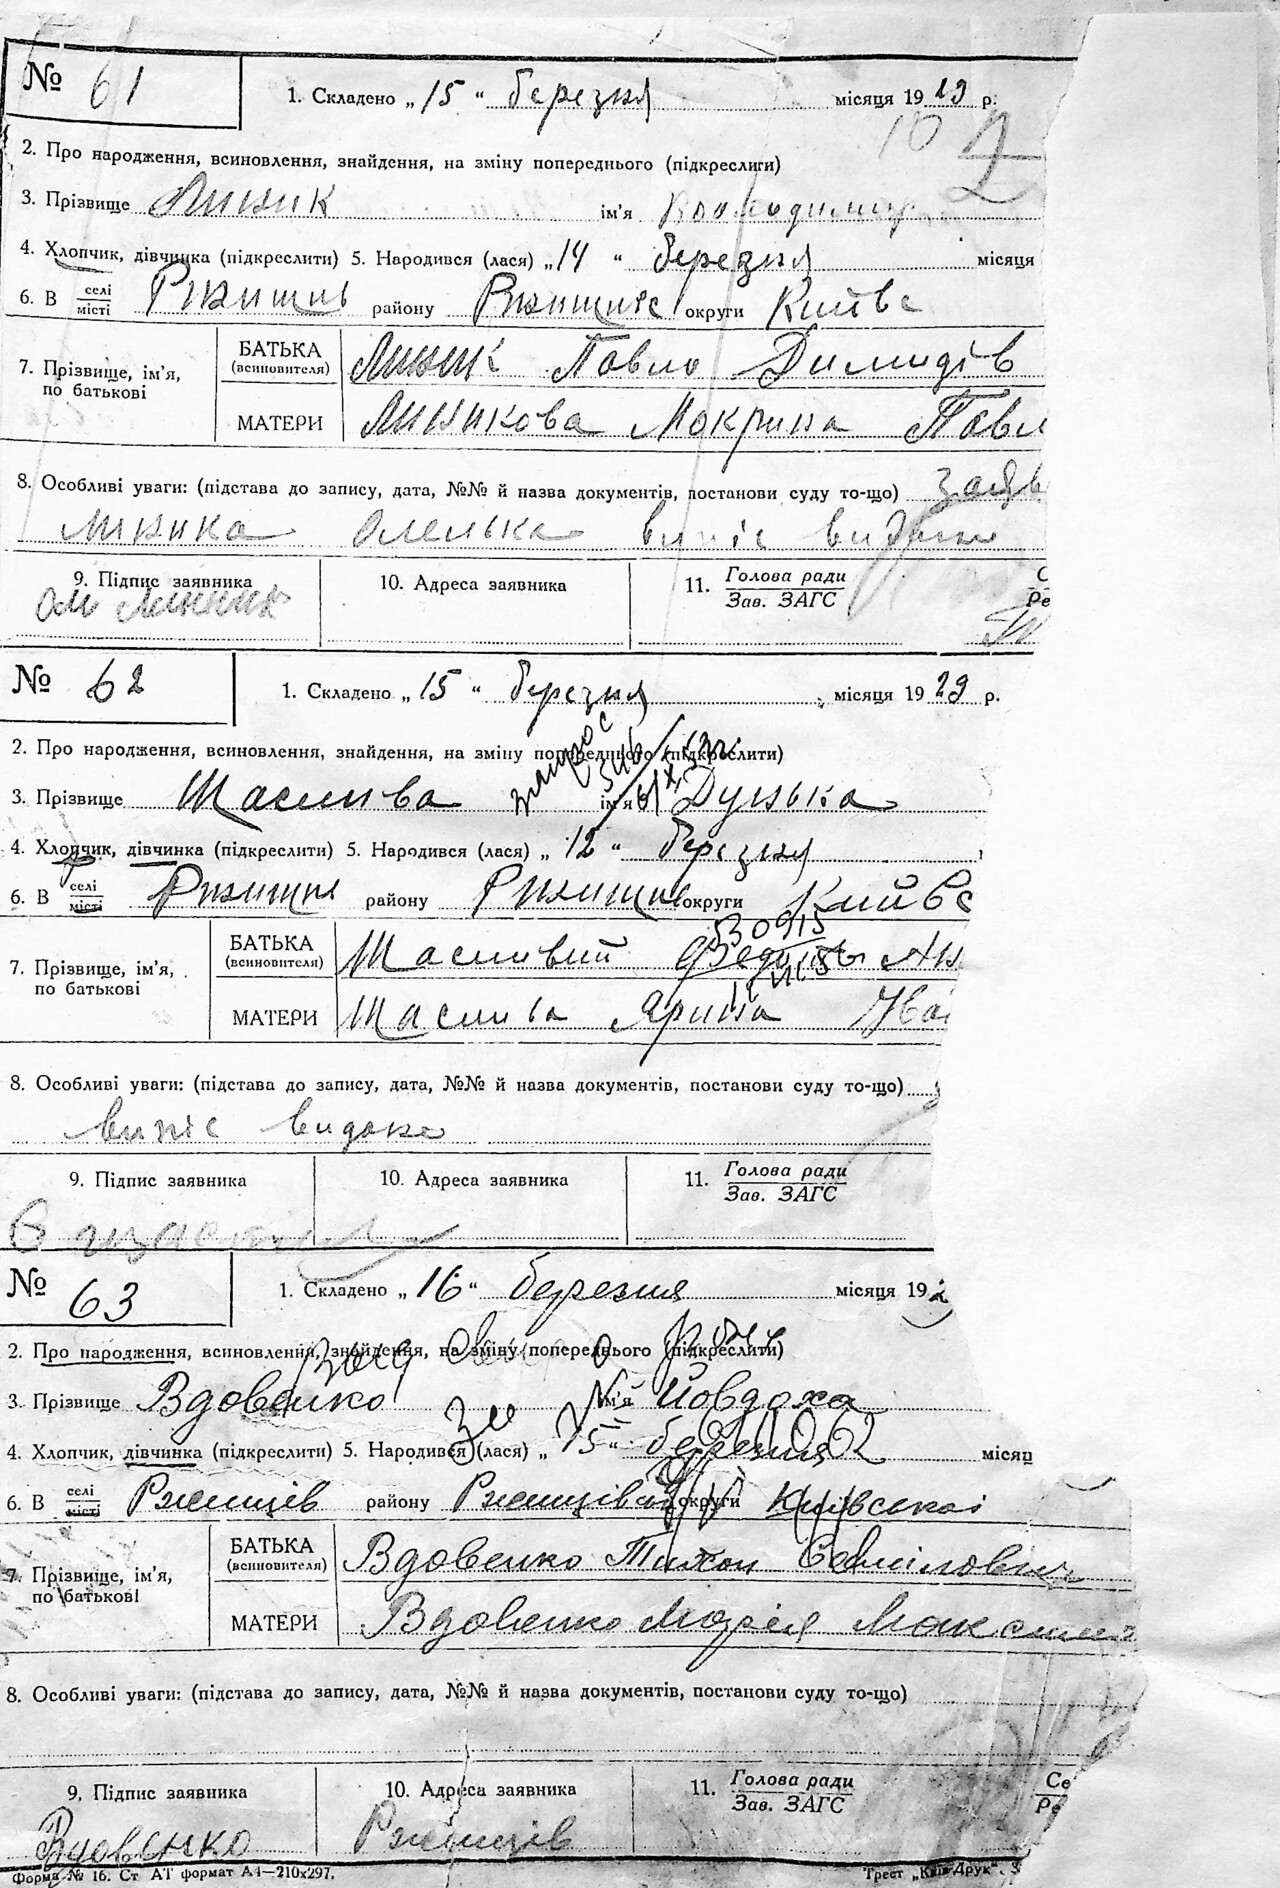 № 61
1. Складено „ 15 “ березня місяця 19 29 р.
2. Про народження, всиновлення, знайдення, на зміну попереднього (підкреслити)
3. Прізвище Линик ім'я Володимир
4. Хлопчик, дівчинка (підкреслити) 5. Народився (лася) „ 14 “ березня місяця
6. В селі місті Ржищів району Ржищівс округи Київс
7. Прізвище, ім'я, по батькові
БАТЬКА (всиновителя) Линик Павло Димидів
МАТЕРИ Линикова Мокрина Павл
8. Особливі уваги: (підстава до запису, дата, №№ й назва документів, постанови суду то-що) заяв
Линика Олелька випіс видано
9. Підпис заявника 10. Адреса заявника 11. Голова ради Зав. ЗАГС
Ол Линик
№ 62
1. Складено „ 15 “ березня місяця 19 29 р.
2. Про народження, всиновлення, знайдення, на зміну попереднього (підкреслити)
3. Прізвище Щаслива ім'я Дунька
4. Хлопчик, дівчинка (підкреслити) 5. Народився (лася) „ 12 “ березня
6. В селі місті Ржищів району Ржищів округи Київс
7. Прізвище, ім'я, по батькові
БАТЬКА (всиновителя) Щасливий Ан
МАТЕРИ Щаслива Ярина Іва
8. Особливі уваги: (підстава до запису, дата, №№ й назва документів, постанови суду то-що)
випіс видано
9. Підпис заявника 10. Адреса заявника 11. Голова ради Зав. ЗАГС
№ 63
1. Складено „ 16 “ березня місяця 192
2. Про народження, всиновлення, знайдення, на зміну попереднього (підкреслити)
3. Прізвище Вдовенко ім'я Йовдоха
4. Хлопчик, дівчинка (підкреслити) 5. Народився (лася) „ 15 “ березня місяц
6. В селі місті Ржищів району Ржищівськ округи Київської
7. Прізвище, ім'я, по батькові
БАТЬКА (всиновителя) Вдовенко Тихон Самілович
МАТЕРИ Вдовенко Марія Максим
8. Особливі уваги: (підстава до запису, дата, №№ й назва документів, постанови суду то-що)
9. Підпис заявника 10. Адреса заявника 11. Голова ради Зав. ЗАГС
Вдовенко Ржищів
Форма № 16. Ст АТ формат А4—210х297. Трест „Київ-Друк“.